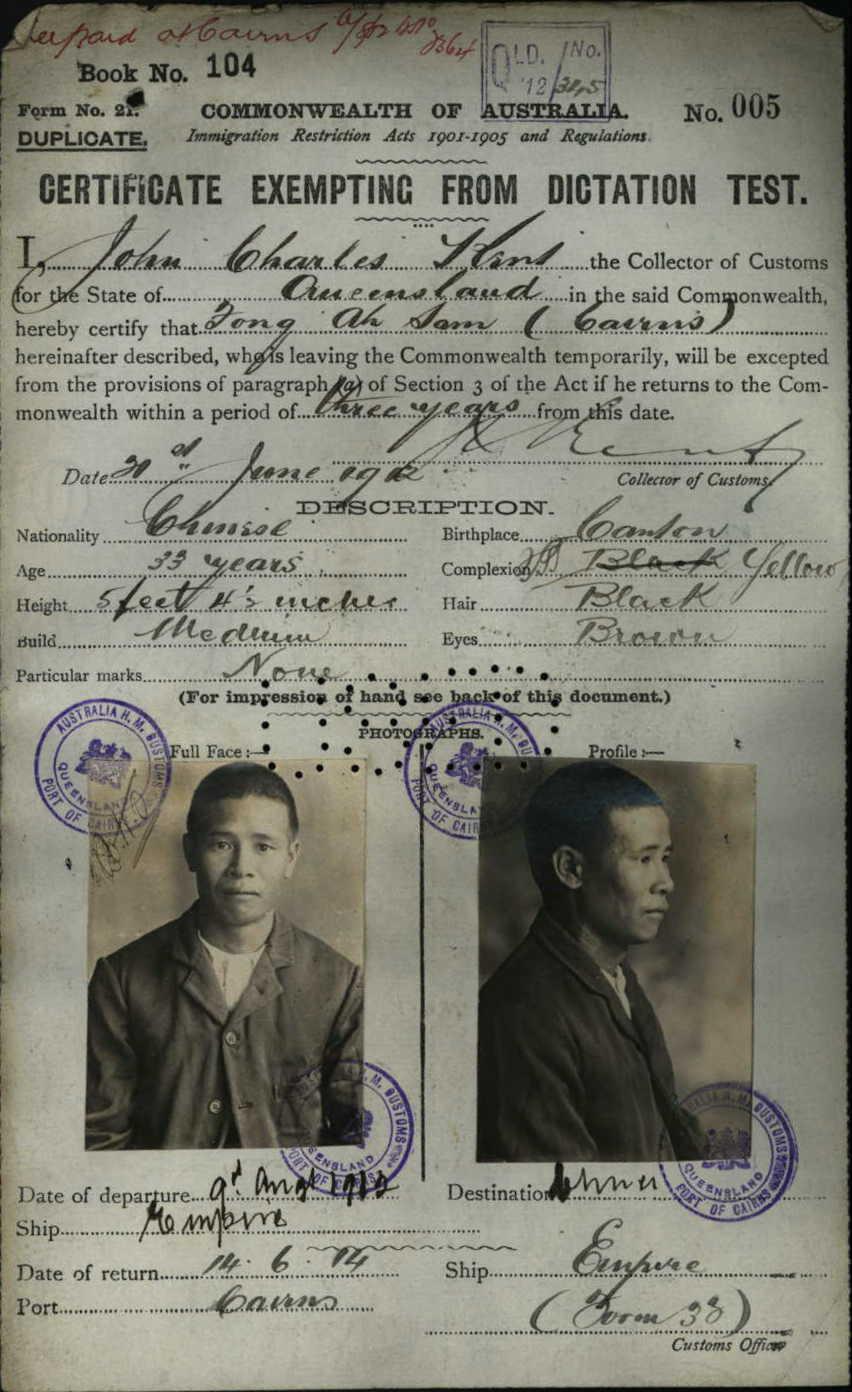 at Cairns
Book No. 104
QLD. No.
'12/
Form No. 21.
COMMONWEALTH OF AUSTRALIA.
No. 005
DUPLICATE.
Immigration Restriction Acts 1901-1905 and Regulations.
CERTIFICATE EXEMPTING FROM DICTATION TEST.
I, John Charles Kent the Collector of Customs
for the State of Queensland in the said Commonwealth,
hereby certify that Tong Ah Sam (Cairns)
hereinafter described, who is leaving the Commonwealth temporarily, will be excepted
from the provisions of paragraph (a) of Section 3 of the Act if he returns to the Com-
monwealth within a period of three years from this date.
Kent
Date June 1912 Collector of Customs.
DESCRIPTION.
Nationality Chinese Birthplace Canton
Age 33 years Complexion Black Yellow
Height 5 feet 4½ inches Hair Black
Build Medium Eyes Brown
Particular marks None
(For impression of hand see back of this document.)
PHOTOGRAPHS.
Full Face :— Profile :—
AUSTRALIA H. M. CUSTOMS
QUEENSLAND
PORT OF CAIRNS
AUSTRALIA H. M. CU
QUEENSLA
PORT OF CAIR
H. M. CUSTOMS
EENSLAND
PORT OF CAIRNS
RALIA H. M. CUSTOMS
QUEENSLAND
PORT OF CAIRNS
Date of departure 9th Augt 1912 Destination China
Ship Empire
Date of return 14.6.14 Ship Empire
Port Cairns (Form 33)
Customs Officer